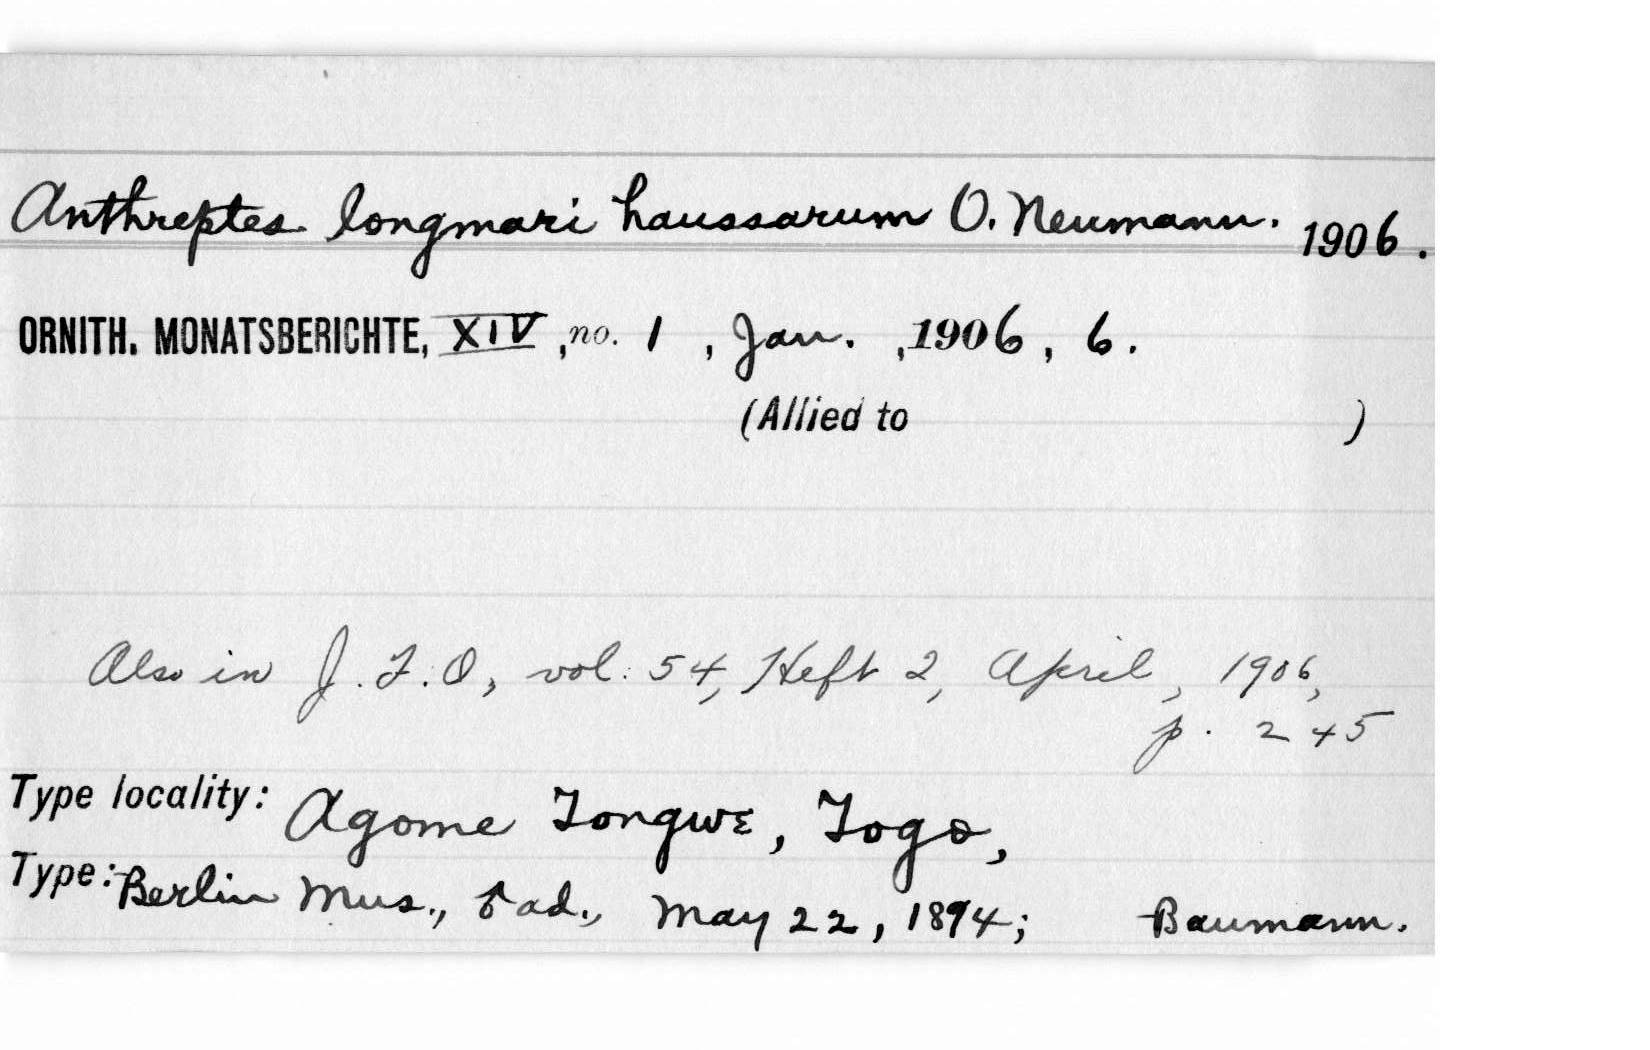 Anthreptes longmari haussarum O. Neumann. 1906.
ORNITH. MONATSBERICHTE, XIV, no. 1, Jan., 1906, 6.
(Allied to )
Also in J. F. O, vol. 54, Heft 2, April, 1906,
p. 245
Type locality: Agome Tongwe, Togo,
Type: Berlin Mus., ♂ ad., May 22, 1894; Baumann.